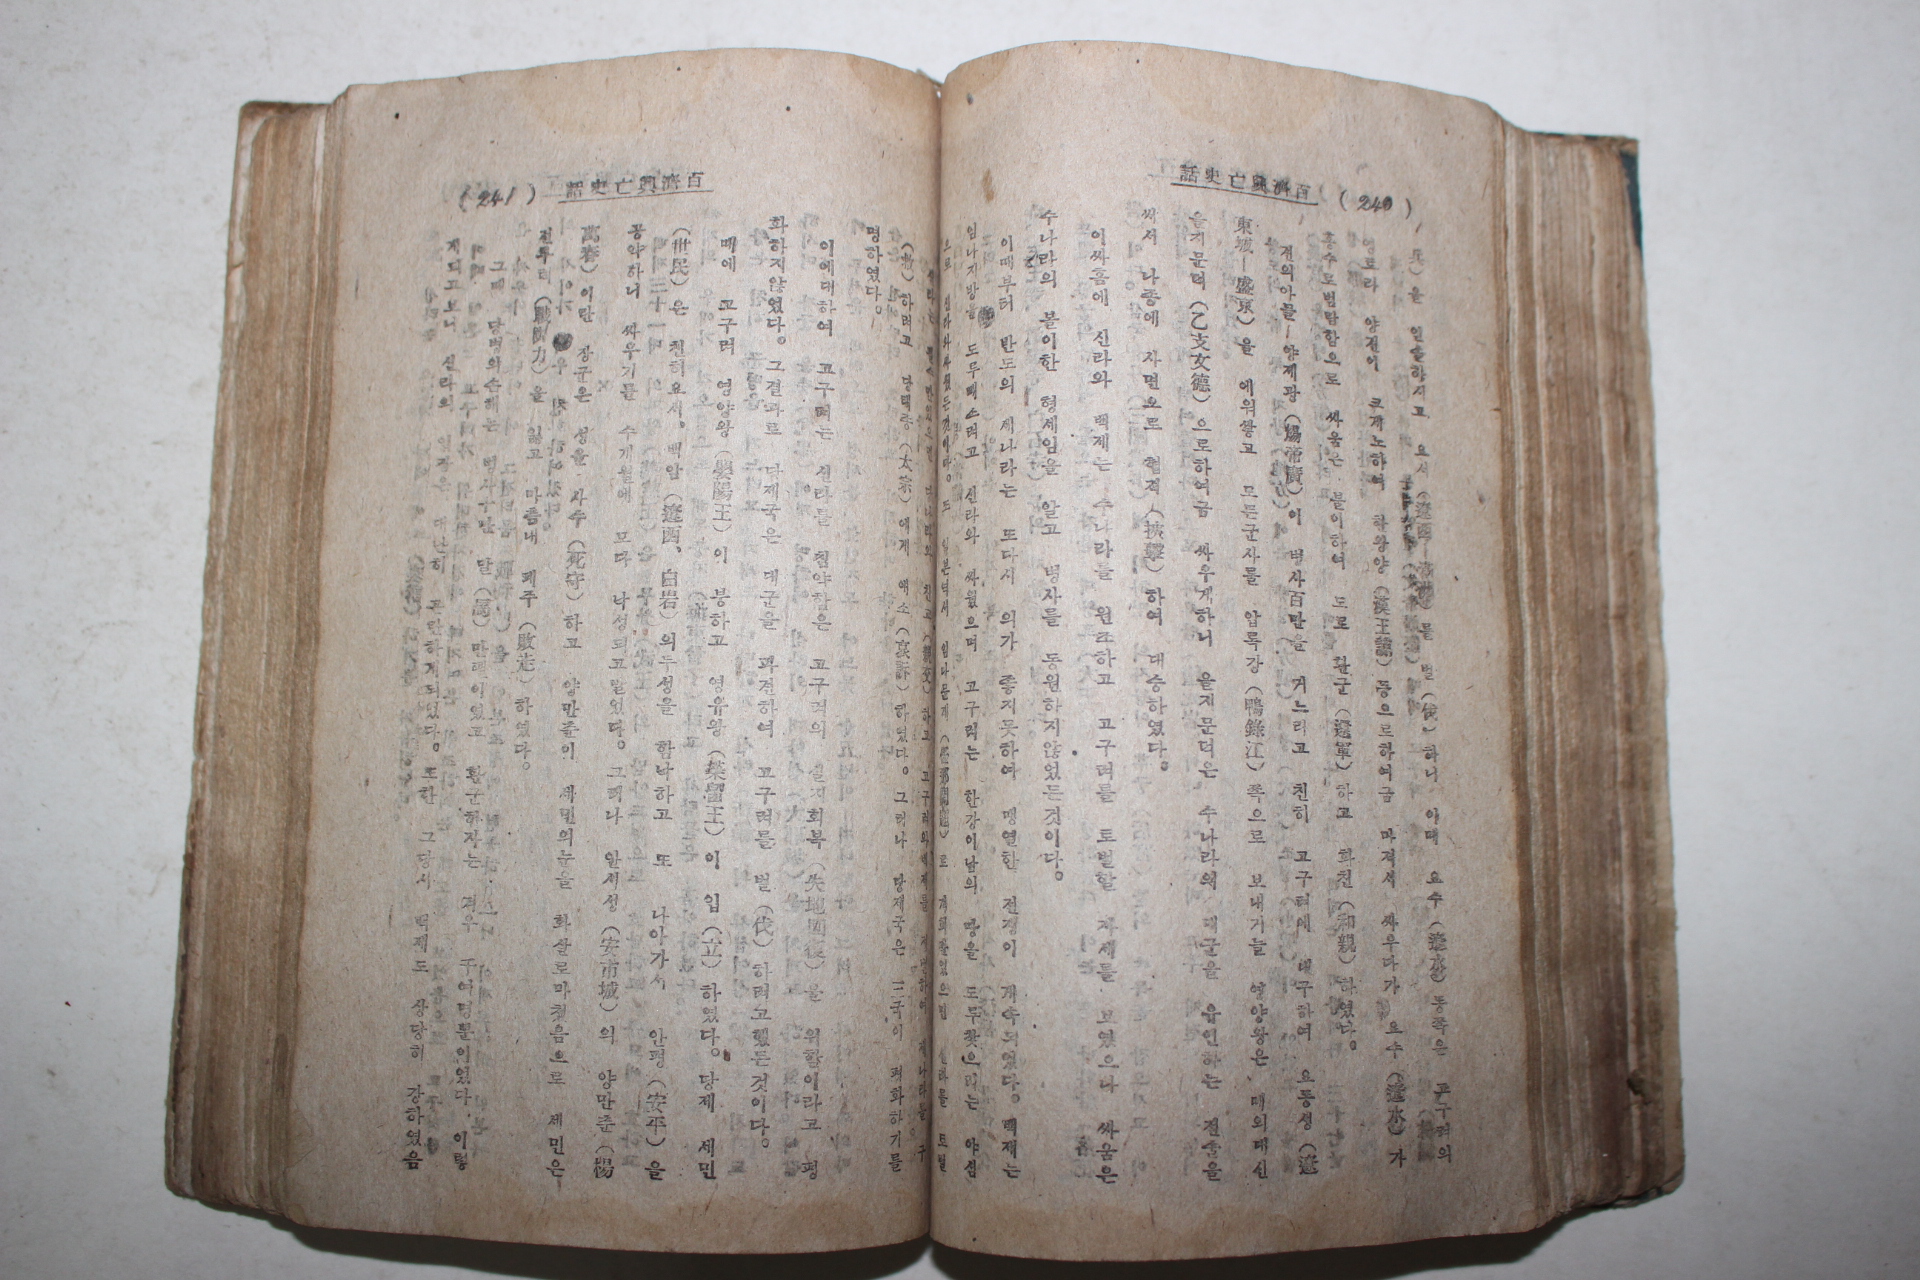 百濟興亡史話 (240)
兵)을 인솔하시고 요서 를 벌(伐)하니 이때 요수(遼水)동쪽은 고구려의
영로라 양견이 크게노하여 한왕양(漢王諒)등으로하여금 마져서 싸우다가 요수(遼水)가
홍수로범람함으로 싸움은 불이하여 도로 환군(還軍)하고 화친(和親)하였다。
견의아들—양제광(煬帝廣)이 병사百만을 거느리고 친히 고구려에 대구하여 요동성(遼
東城—盛京)을 에워쌓고 모든군사를 압록강(鴨錄江)쪽으로 보내거늘 영양왕은 대의대신
을지문덕(乙支文德)으로하여금 싸우게하니 을지문덕은 수나라의 대군을 유인하는 전술을
써서 나종에 사면으로 협격(挾擊)하여 대승하였다。
이싸흠에 신라와 백제는 수나라를 원조하고 고구려를 토벌할 자세를 보였으나 싸움은
수나라의 불이한 형세임을 알고 병사를 동원하지않었든것이다。
이때부터 반도의 세나라는 또다시 의가 좋지못하여 맹열한 전쟁이 계속되었다。백제는
임나지방을 도루떼스려고 신라와 싸웠으며 고구려는 한강이남의 땅을 도루찾으려는 야심
으로 신라와싸웠든것이다。또 일본역시 임나문제 로 개의 신라를 토벌
百濟興亡史話 (241)
하고 고구려와백제를 하여 세나라를 구
하려고 당태종(太宗)에게 애소(哀訴)하였다。그러나 당제국은 三국이 평화하기를
명하였다。
이에대하여 고구려는 신라를 침약함은 고구려의 실지회복(失地回復)을 위함이라고 평
화하지않었다。그결과로 당제국은 대군을 파견하여 고구려를 벌(伐)하려고했든것이다。
때에 고구려 영양왕(嬰陽王)이 붕하고 영유왕(榮留王)이 입(立)하였다。당제 세민
(世民)은 친히요서、백암(遼西、白岩)의두성을 함낙하고 또 나아가서 안평(安平)을
공약하니 싸우기를 수개월에 모다 낙성되고말었다。그러나 안시성(安市城)의 양만춘(楊
萬春)이란 장군은 성을 사수(死守)하고 양만춘이 세민의눈을 화살로마첬음으로 세민은
전투력(戰鬪力)을 잃고 마츰내 패주(敗走)하였다。
그때 당병의손해는 병사구만 말(馬)만 이었고 환군하자는 겨우 수여명뿐이었다. 이렇
게되고보니 신라의 입장은 대단히 곤란하게되었다。또한 그당시 백제도 상당히 강하였음